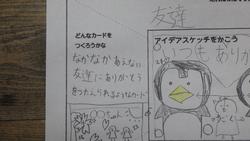 友達
どんなカードを
つくろうかな
なかなかあえない
友達にありがとう
をつたえられるようなカード
アイデアスケッチをかこう
いつもありが